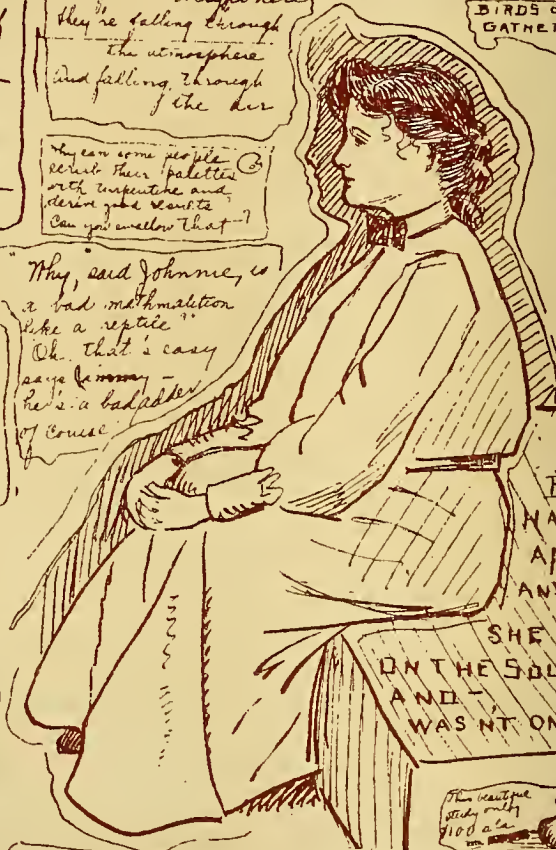 they're falling through
the atmosphere
And falling, through
the air
BIRDS
GATHE
Why can some people
scrub their palettes
with turpentine and
derive good results
Can you swallow that?
"Why, said Johnnie, is
a bad mathmatition
like a reptile"
Oh that's easy
says Jimmy —
he's a bad adder
of course
HA
AN
SHE
ON THE SOU
AND —
WASN'T ON
This beautiful
study only
$100 a la